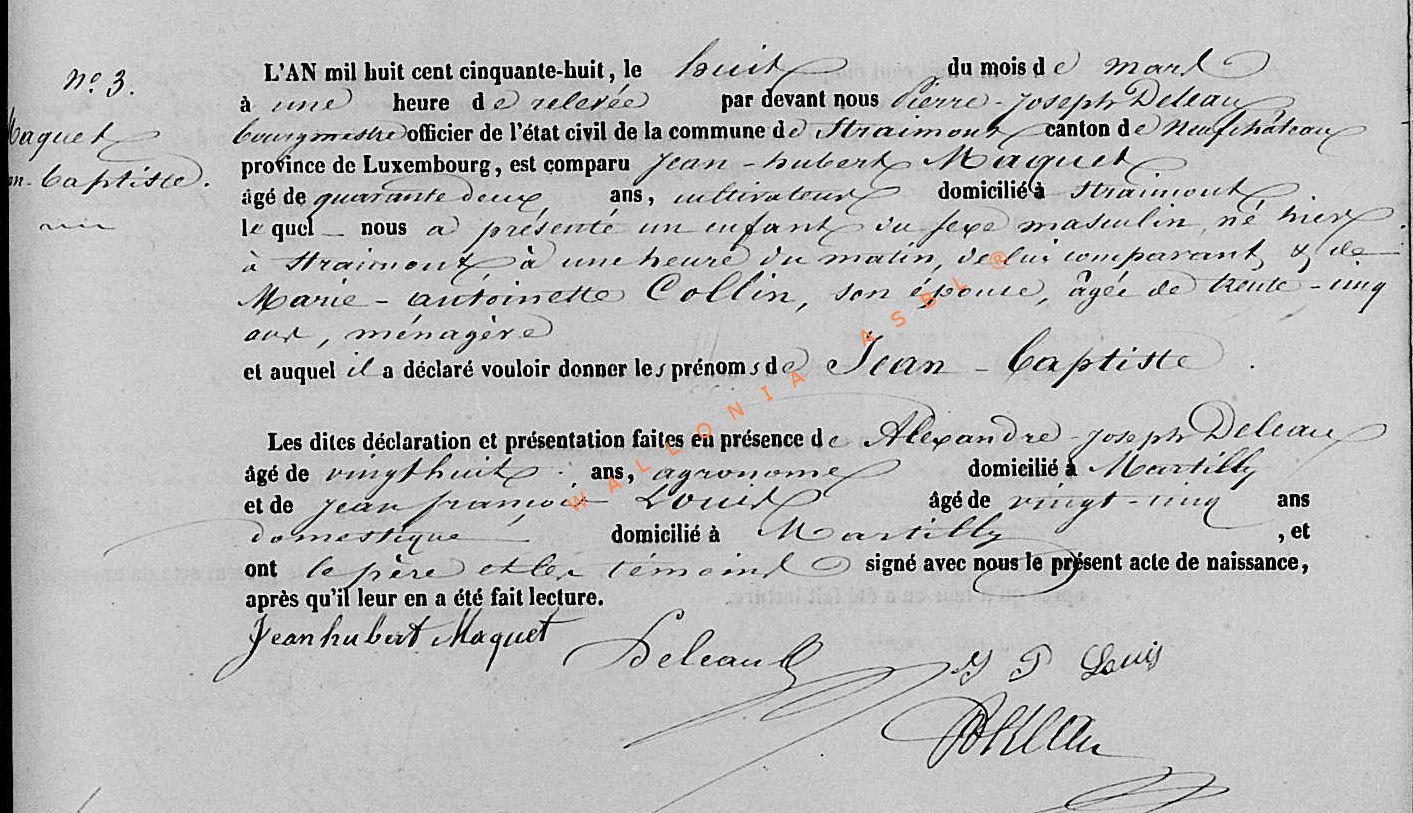 N.º 3.
Maquet
Baptiste.
L'AN mil huit cent cinquante-huit, le huit du mois de mars
à une heure de relevée par devant nous Pierre-Joseph Deleau
bourgmestre officier de l'état civil de la commune de Straimont canton de Neufchâteau
province de Luxembourg, est comparu Jean-hubert Maquet
âgé de quarante deux ans, cultivateur domicilié à Straimont
lequel nous a présenté un enfant du sexe masculin, né hier
à Straimont, à une heure du matin, de lui comparant, & de
Marie-antoinette Collin, son épouse, âgée de trente-cinq
ans, ménagère
et auquel il a déclaré vouloir donner les prénoms de Jean-Baptiste.
Les dites déclaration et présentation faites en présence de Alexandre-Joseph Deleau
âgé de vingt huit ans, agronome domicilié à Martilly
et de jean françois Louis âgé de vingt-cinq ans
domestique domicilié à Martilly, et
ont le père et les témoins signé avec nous le présent acte de naissance,
après qu'il leur en a été fait lecture.
Jean hubert Maquet
Deleau
Louis
Deleau
WALLONIA ASBL ®